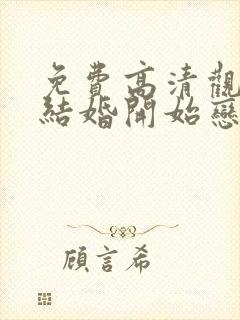 免費高清觀
結婚開始戀
顧言希